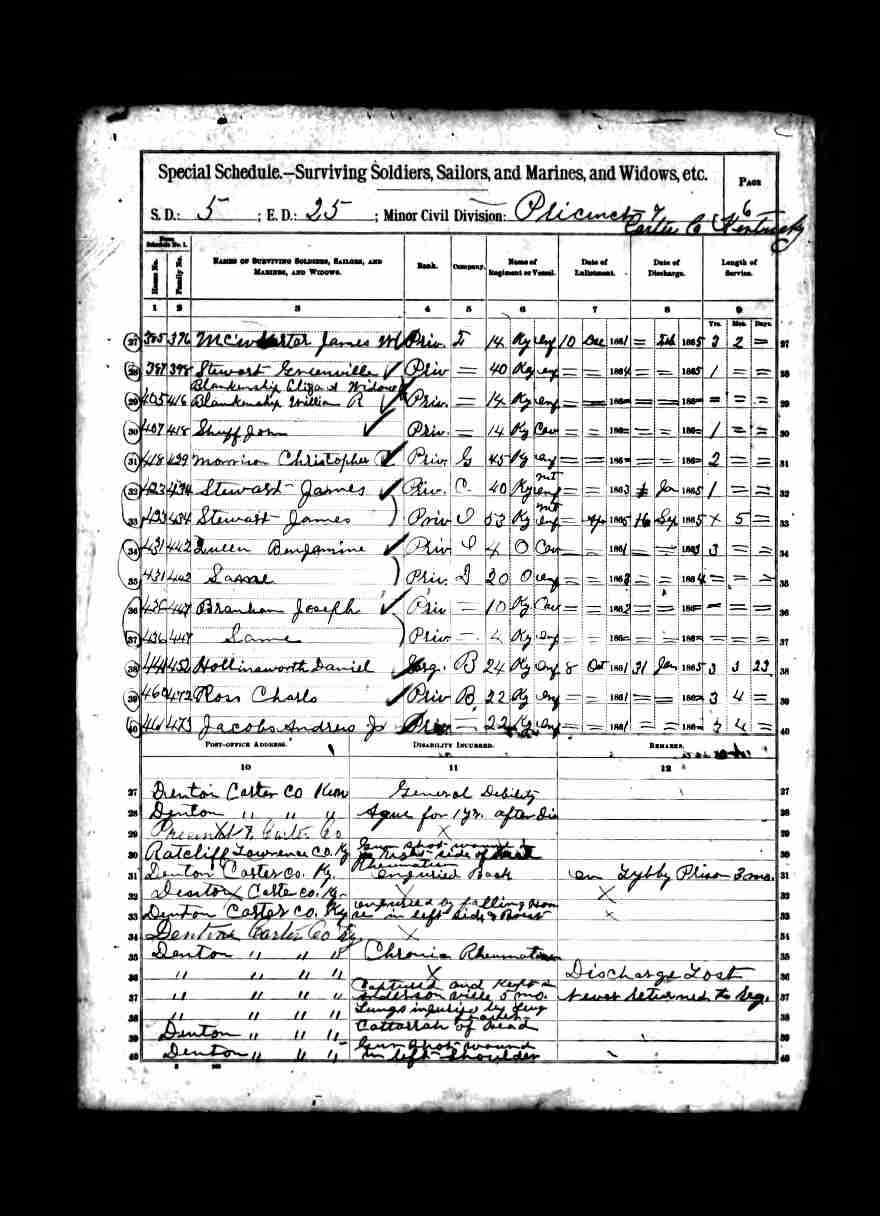 Special Schedule.—Surviving Soldiers, Sailors, and Marines, and Widows, etc.
PAGE 6
S. D.: 5 ; E. D.: 25 ; Minor Civil Division: 7
Carter Co Kentucky
From Schedule No. 1.
House No. Family No. NAMES OF SURVIVING SOLDIERS, SAILORS, AND MARINES, AND WIDOWS. Rank. Company. Name of Regiment or Vessel. Date of Enlistment. Date of Discharge. Length of Service.
1 2 3 4 5 6 7 8 9
Yrs. Mos. Days.
27 385 376 James W Priv. 14 Ky inf 10 Dec 1861 = Feb 1865 3 2 = 27
28 Stewart Greenville Priv — 40 Ky = = 1864 = = 1865 1 = = 28
Blankenship Eliza A Widow
29 405 416 Blankenship William R Priv. — 14 Ky Inf = = 186 = = 186 = = = 29
30 407 418 Shuff John Priv. — 14 Ky Cav = = 186 = = 186 1 = = 30
31 418 429 Morrison Christophe Priv. G 45 Ky = = 186 = = 186 2 = = 31
32 423 434 Stewart James Priv. C. 40 Ky mt inf = = 1863 Jan 1865 1 = = 32
33 423 434 Stewart James Priv 53 Ky mt inf = 1865 16 Sep 1865 x 5 = 33
34 431 442 Queen Benjamine Priv 4 O Cav = = 1861 = = 186 3 = = 34
35 431 442 Same Priv. 20 O = = 186 = = 1864 = = = 35
36 436 447 Branham Joseph Priv — 10 Ky Cav = = 186 = = 186 = = = 36
37 436 447 Same Priv — 4 Ky Inf = = 186 = = 186 = = = 37
38 441 452 Hollinsworth Daniel Serg. B 24 Ky Inf 8 Oct 1861 31 Jan 1865 3 3 23 38
39 460 472 Ross Charls Priv B. 22 Ky = = 1861 = = 186 3 4 = 39
40 461 473 Jacobs Andrew Jr Priv — 22 Ky = = 1861 = = 186 3 4 = 40
POST-OFFICE ADDRESS. DISABILITY INCURRED. REMARKS.
10 11 12
27 Denton Carter Co Ken General Debility 27
28 Denton " " " Ague for 1 yr. after Dis 28
29 7, Carter Co X 29
30 Ratcliff Lawrence Co. Ky Gun Shot wound in Right side of 30
31 Denton Carter Co. Ky. Rheumatism enguried Back en Lybby Prison 3 mo. 31
32 Denton Carte co. Ky. X X 32
33 Denton Carter co. Ky by falling x 33
34 Carter Co Ky X 34
35 Denton " " " Chronic Rheumatism 35
36 " " " " X Discharge Lost 36
37 " " " " Captured and Kept 5 mo. Never Returned to Reg. 37
38 " " " " Lungs by 38
39 Denton " " " Cattarrah of Head 39
40 Denton " " " Gun Shot wound in left Shoulder 40